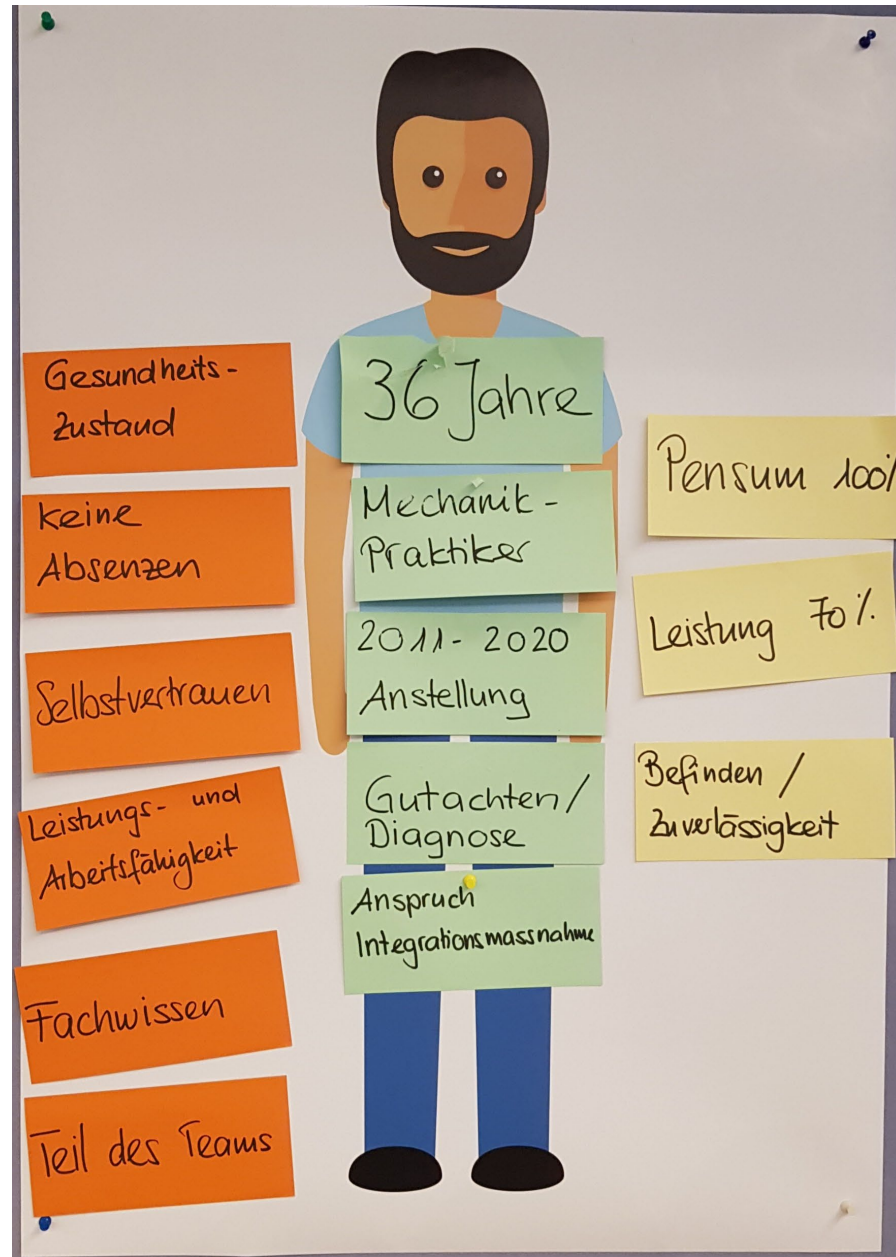 Gesundheits-
Zustand
Keine
Absenzen
Selbstvertrauen
Leistungs- und
Arbeitsfähigkeit
Fachwissen
Teil des Teams
36 Jahre
Mechanik-
Praktiker
2011- 2020
Anstellung
Gutachten/
Diagnose
Anspruch
Integrationsmassnahme
Pensum 100%
Leistung 70%
Befinden /
Zuverlässigkeit